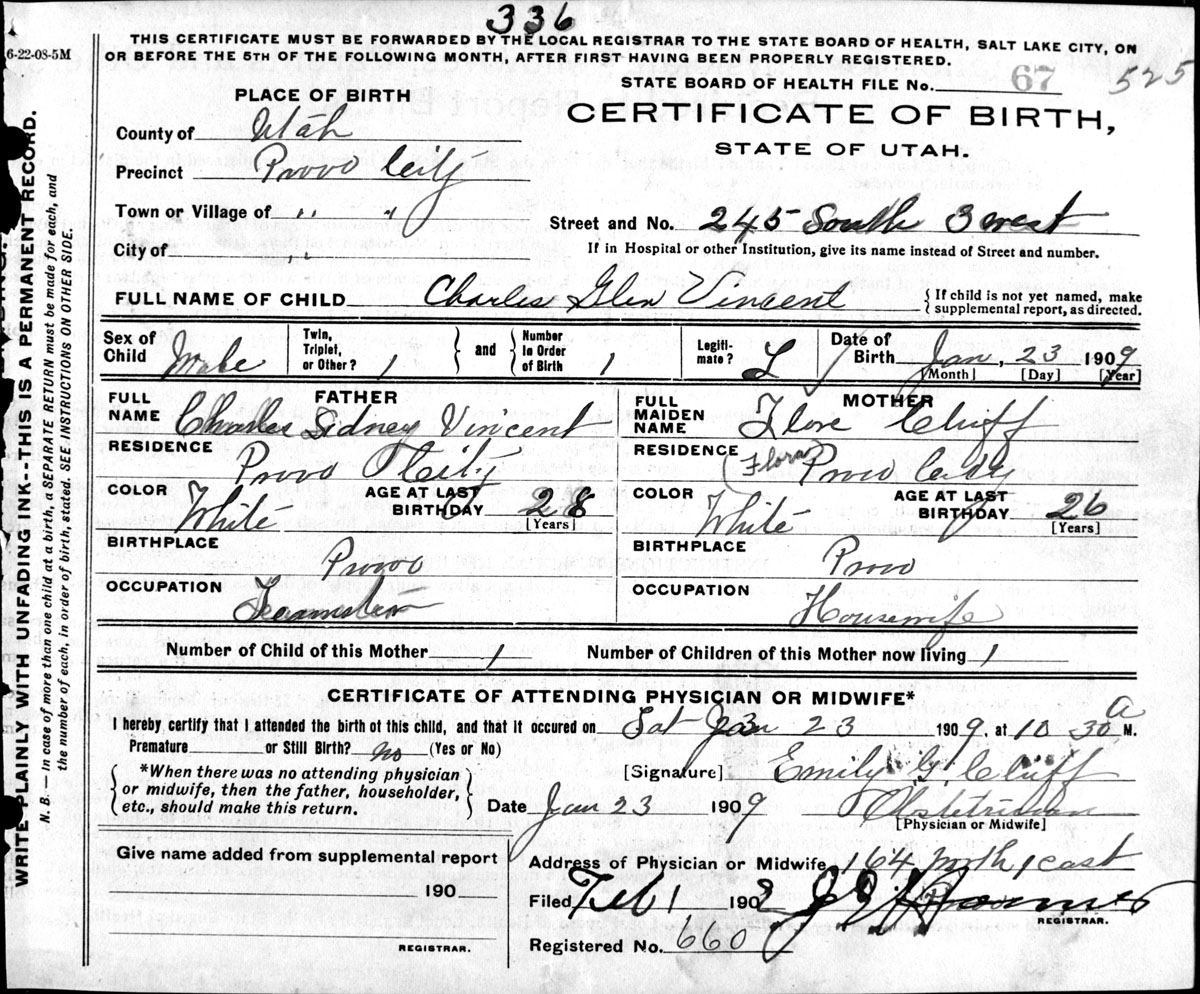 336
6-22-08-5M
THIS CERTIFICATE MUST BE FORWARDED BY THE LOCAL REGISTRAR TO THE STATE BOARD OF HEALTH, SALT LAKE CITY, ON
OR BEFORE THE 5TH OF THE FOLLOWING MONTH, AFTER FIRST HAVING BEEN PROPERLY REGISTERED.
STATE BOARD OF HEALTH FILE No. 67 525
PLACE OF BIRTH
CERTIFICATE OF BIRTH,
STATE OF UTAH.
County of Utah
Precinct Provo City
Town or Village of " "
Street and No. 245 South 3 west
If in Hospital or other Institution, give its name instead of Street and number.
City of "
FULL NAME OF CHILD Charles Glen Vincent
{ If child is not yet named, make
supplemental report, as directed.
Sex of Child Male
Twin, Triplet, or Other? 1
and
Number In Order of Birth 1
Legiti-mate? L
Date of Birth Jan, 23 1909
[Month] [Day] [Year]
FATHER
FULL NAME Charles Sidney Vincent
RESIDENCE Provo City
COLOR White
AGE AT LAST BIRTHDAY 28
[Years]
BIRTHPLACE Provo
OCCUPATION Teamster
MOTHER
FULL MAIDEN NAME Flore Cluff
(Flora)
RESIDENCE Provo City
COLOR White
AGE AT LAST BIRTHDAY 26
[Years]
BIRTHPLACE Provo
OCCUPATION Housewife
Number of Child of this Mother 1
Number of Children of this Mother now living 1
CERTIFICATE OF ATTENDING PHYSICIAN OR MIDWIFE*
I hereby certify that I attended the birth of this child, and that it occured on Sat Jan 23 1909, at 10 30 A M.
Premature or Still Birth? no (Yes or No)
{ *When there was no attending physician
or midwife, then the father, householder,
etc., should make this return. }
[Signature] Emily G Cluff
Date Jan 23 1909
Obstetrician
[Physician or Midwife]
Give name added from supplemental report
190
REGISTRAR.
Address of Physician or Midwife 164 north 1 east
Filed Feb 1 190
REGISTRAR.
Registered No. 660
WRITE PLAINLY WITH UNFADING INK--THIS IS A PERMANENT RECORD.
N. B. — In case of more than one child at a birth, a SEPARATE RETURN must be made for each, and
the number of each, in order of birth, stated. SEE INSTRUCTIONS ON OTHER SIDE.